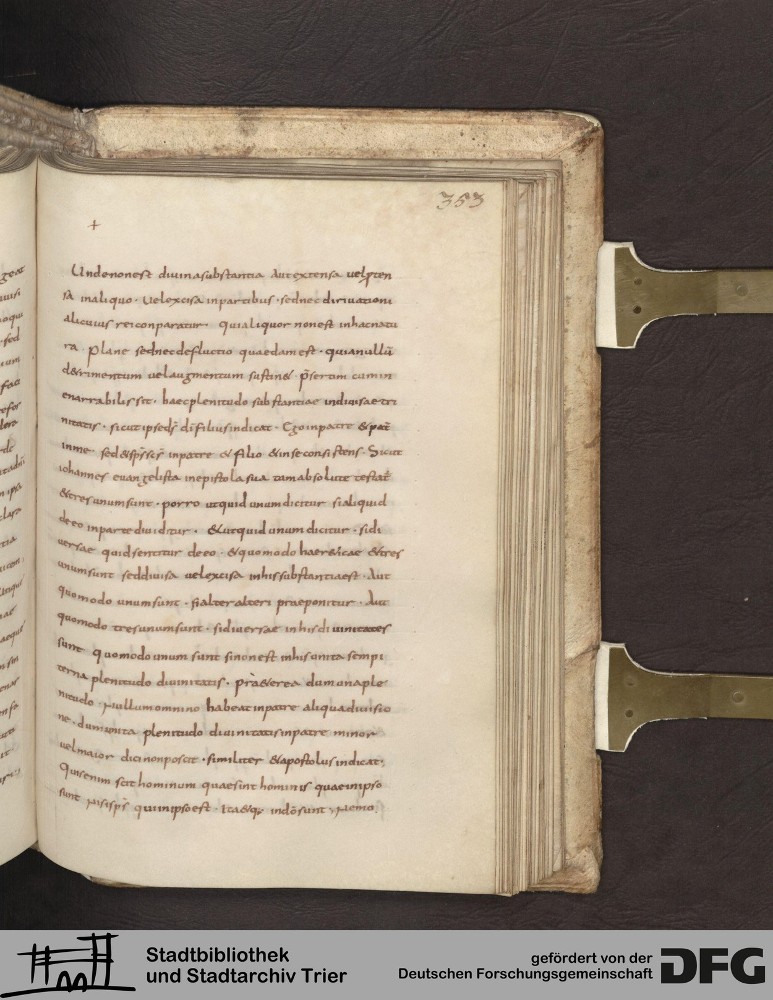 353
+
Unde non est divina substantia Aut extensa vel
sa in aliquo · vel excisa in partibus · sed nec dirivationi
alicuius rei conparatur · quia liquor non est in hac natu
ra plane sed nec defluctio quaedam est · quia nullū
detrimentum vel augmentum sustinet p̄sertim cum in
enarrabilis sit · haec plenitudo substantiae indivisae tri
nitatis · sicut ipse dī filius indicat · Ego in patre & pat̄
in me · sed & sp̄s scs̄ in patre & filio & in se consistens · Sicut
iohannes evangelista in epistola sua tam absolute testat̄
& tres unum sunt · porro ut quid unum dicitur si aliquid
de eo in parte dividitur · & ut quid unum dicitur · si di
versae quid sentitur de eo · & quomodo haereticae & tres
unum sunt sed divisa vel excisa in his substantia est · Aut
quomodo unum sunt · si alter alteri praeponitur · Aut
quomodo tres unum sunt · si diversae in his divinitates
sunt quomodo unum sunt si non est in his unita sempi
terna plenitudo divinitatis · praeterea dum una ple
nitudo Nullum omnino habeat in patre aliqua divisio
ne · dum unita plenitudo divinitatis in patre minor
vel maior dici non possit · similiter & apostolus indicat ·
Quis enim scit hominum quae sint hominis quae in ipso
sunt Nisi sp̄s qui in ipso est · Ita & quę in dō sunt · Nemo
Stadtbibliothek
und Stadtarchiv Trier
gefördert von der
Deutschen Forschungsgemeinschaft
DFG